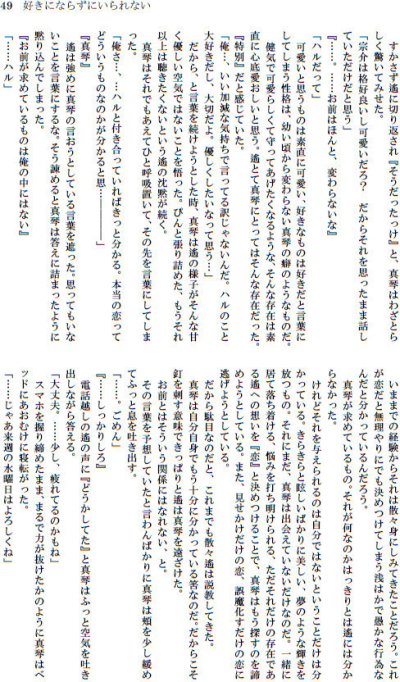 49　好きにならずにいられない
すかさず遙に切り返され『そうだったっけ』と、真琴はわざとら
しく驚いてみせた。
「宗介は格好良いし可愛いだろ？　だからそれを思ったまま話し
ていただけだと思う」
『……。……お前はほんと、変わらないな』
「ハルだって」
　可愛いと思うものは素直に可愛い、好きなものは好きだと言葉に
してしまう性格は、幼い頃から変わらない真琴の癖のようなものだ。
健気で可愛らしくて守ってあげたくなるような、そんな存在は素
直に心底愛おしいと思う。遙とて真琴にとってはそんな存在だった。
『特別』だと感じていた。
「俺…、いい加減な気持ちで言ってる訳じゃないんだ。ハルのこと
大好きだし、大切だよ。優しくしたいなって思う…」
　だから、と言葉を続けようとした時、真琴は遙の様子がそんな甘
く優しい空気ではないことを悟った。ぴんと張り詰めた、もうそれ
以上は聴きたくないという遙の沈黙が続く。
　真琴はそれでもあえてひと呼吸置いて、その先を言葉にしてしま
った。
「俺さ、…ハルと付き合っていればきっと分かる。本当の恋って
どういうものなのかが分かると思————」
『真琴』
　遙は強めに真琴の言おうとしている言葉を遮った。思ってもいな
いことを言葉にするな、そう諫めると真琴は答えに詰まったように
黙り込んでしまった。
『お前が求めているものは俺の中にはない』
「……ハル」
　いままでの経験からそれは散々身にしみてきたことだろう。これ
が恋だと無理やりにでも決めつけてしまう浅はかで愚かな行為な
んだと分かっているんだろう。
　真琴が求めているもの。それが何なのかはっきりとは遙には分か
らなかった。
　けれどそれを与えられるのは自分ではないということだけは分
かっている。きらきらと眩しいばかりに美しい、夢のような輝きを
放つもの。それにまだ、真琴は出会えていないだけなのだ。一緒に
居て落ち着ける、悩みを打ち明けられる、ただそれだけの存在であ
る遙への想いを『恋』と決めつけることで、真琴はもう探すのを諦
めようとしている。また、見せかけだけの恋、誤魔化すだけの恋に
逃げようとしている。
　だから駄目なのだと、これまでも散々遙は説教してきた。
　真琴は自分自身でもう十分に分かっている筈なのだ。だからこそ
釘を刺す意味できっぱりと遙は真琴を遠ざけた。
　お前とはそういう関係にはなれない、と。
　その言葉を予想していたと言わんばかりに真琴は頬を少し緩め
てふっと息を吐き出す。
「……。ごめん」
『……しっかりしろ』
　電話越しの遙の声に『どうかしてた』と真琴はふっと空気を吐き
出しながら答える。
「大丈夫。……少し、疲れてるのかもね」
　スマホを握り締めたまま、まるで力が抜けたかのように真琴はベ
ッドにあおむけに寝転がった。
「……じゃあ来週の水曜日はよろしくね」